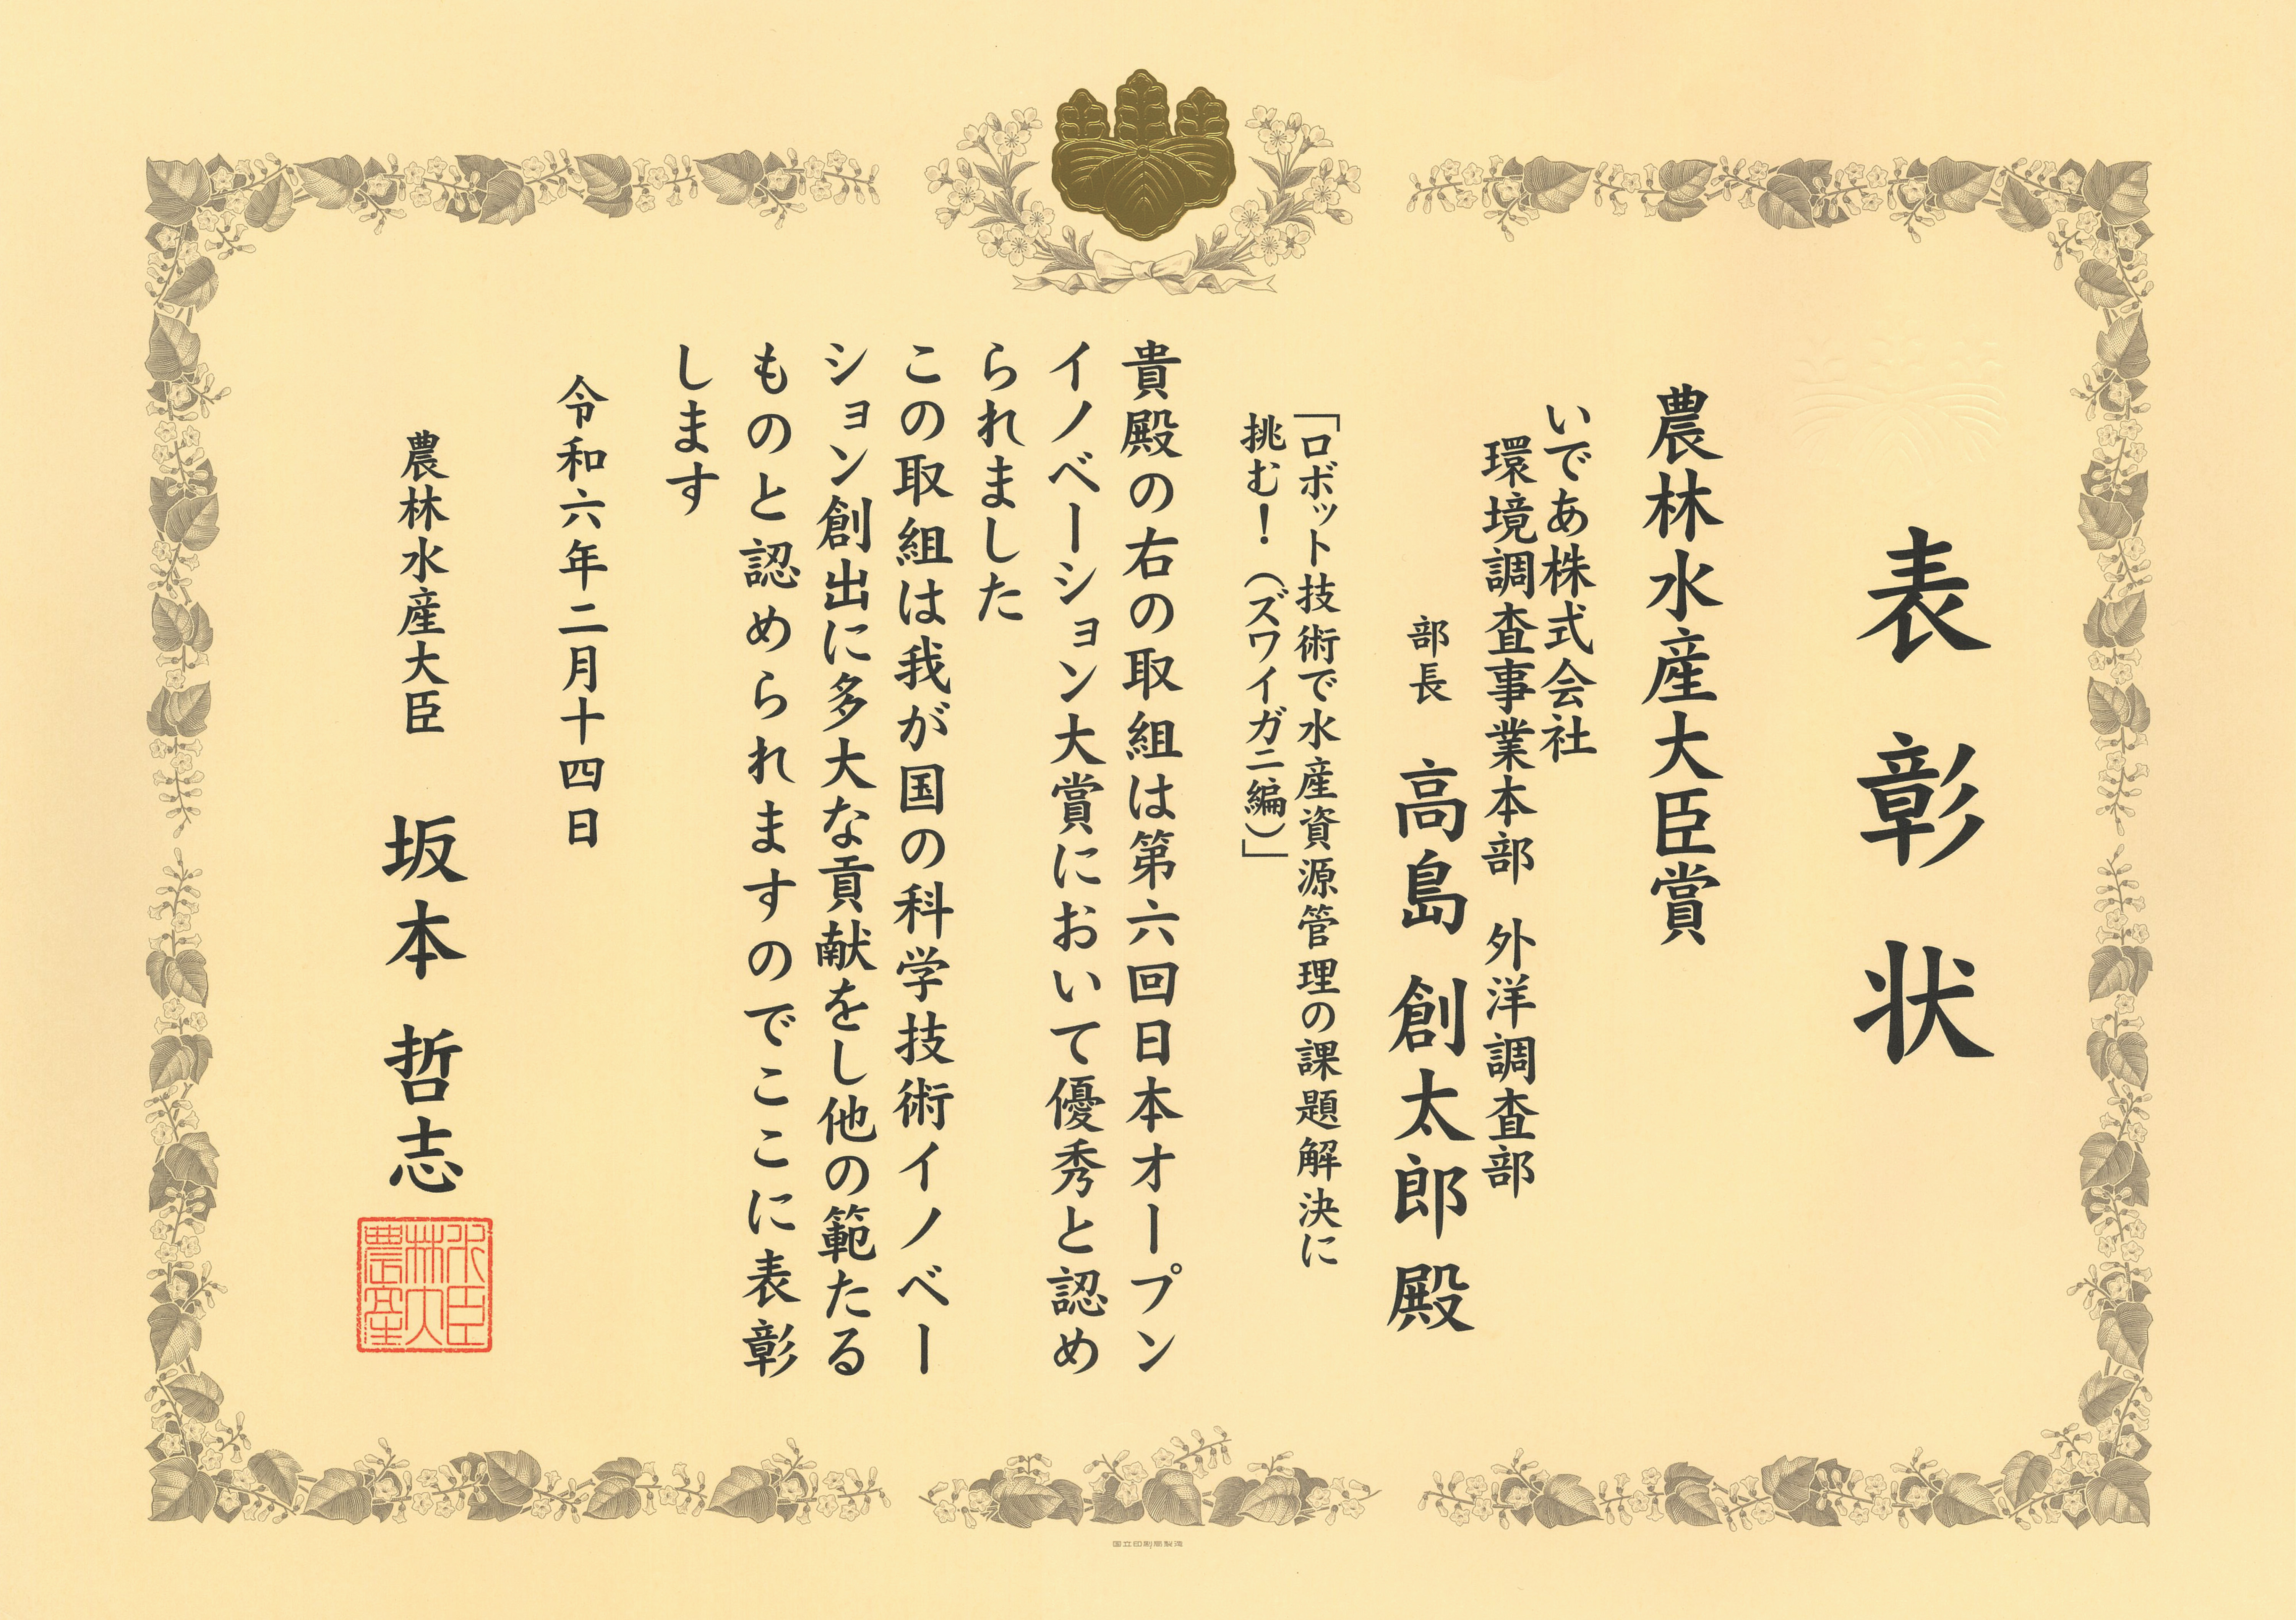 表彰状
農林水産大臣賞
いであ株式会社
環境調査事業本部 外洋調査部
部長 高島 創太郎 殿
「ロボット技術で水産資源管理の課題解決に
挑む!(ズワイガニ編)」
貴殿の右の取組は第六回日本オープン
イノベーション大賞において優秀と認め
られました
この取組は我が国の科学技術イノベー
ション創出に多大な貢献をし他の範たる
ものと認められますのでここに表彰
します
令和六年二月十四日
農林水産大臣 坂本 哲志
農林水産大臣
国立印刷局製造